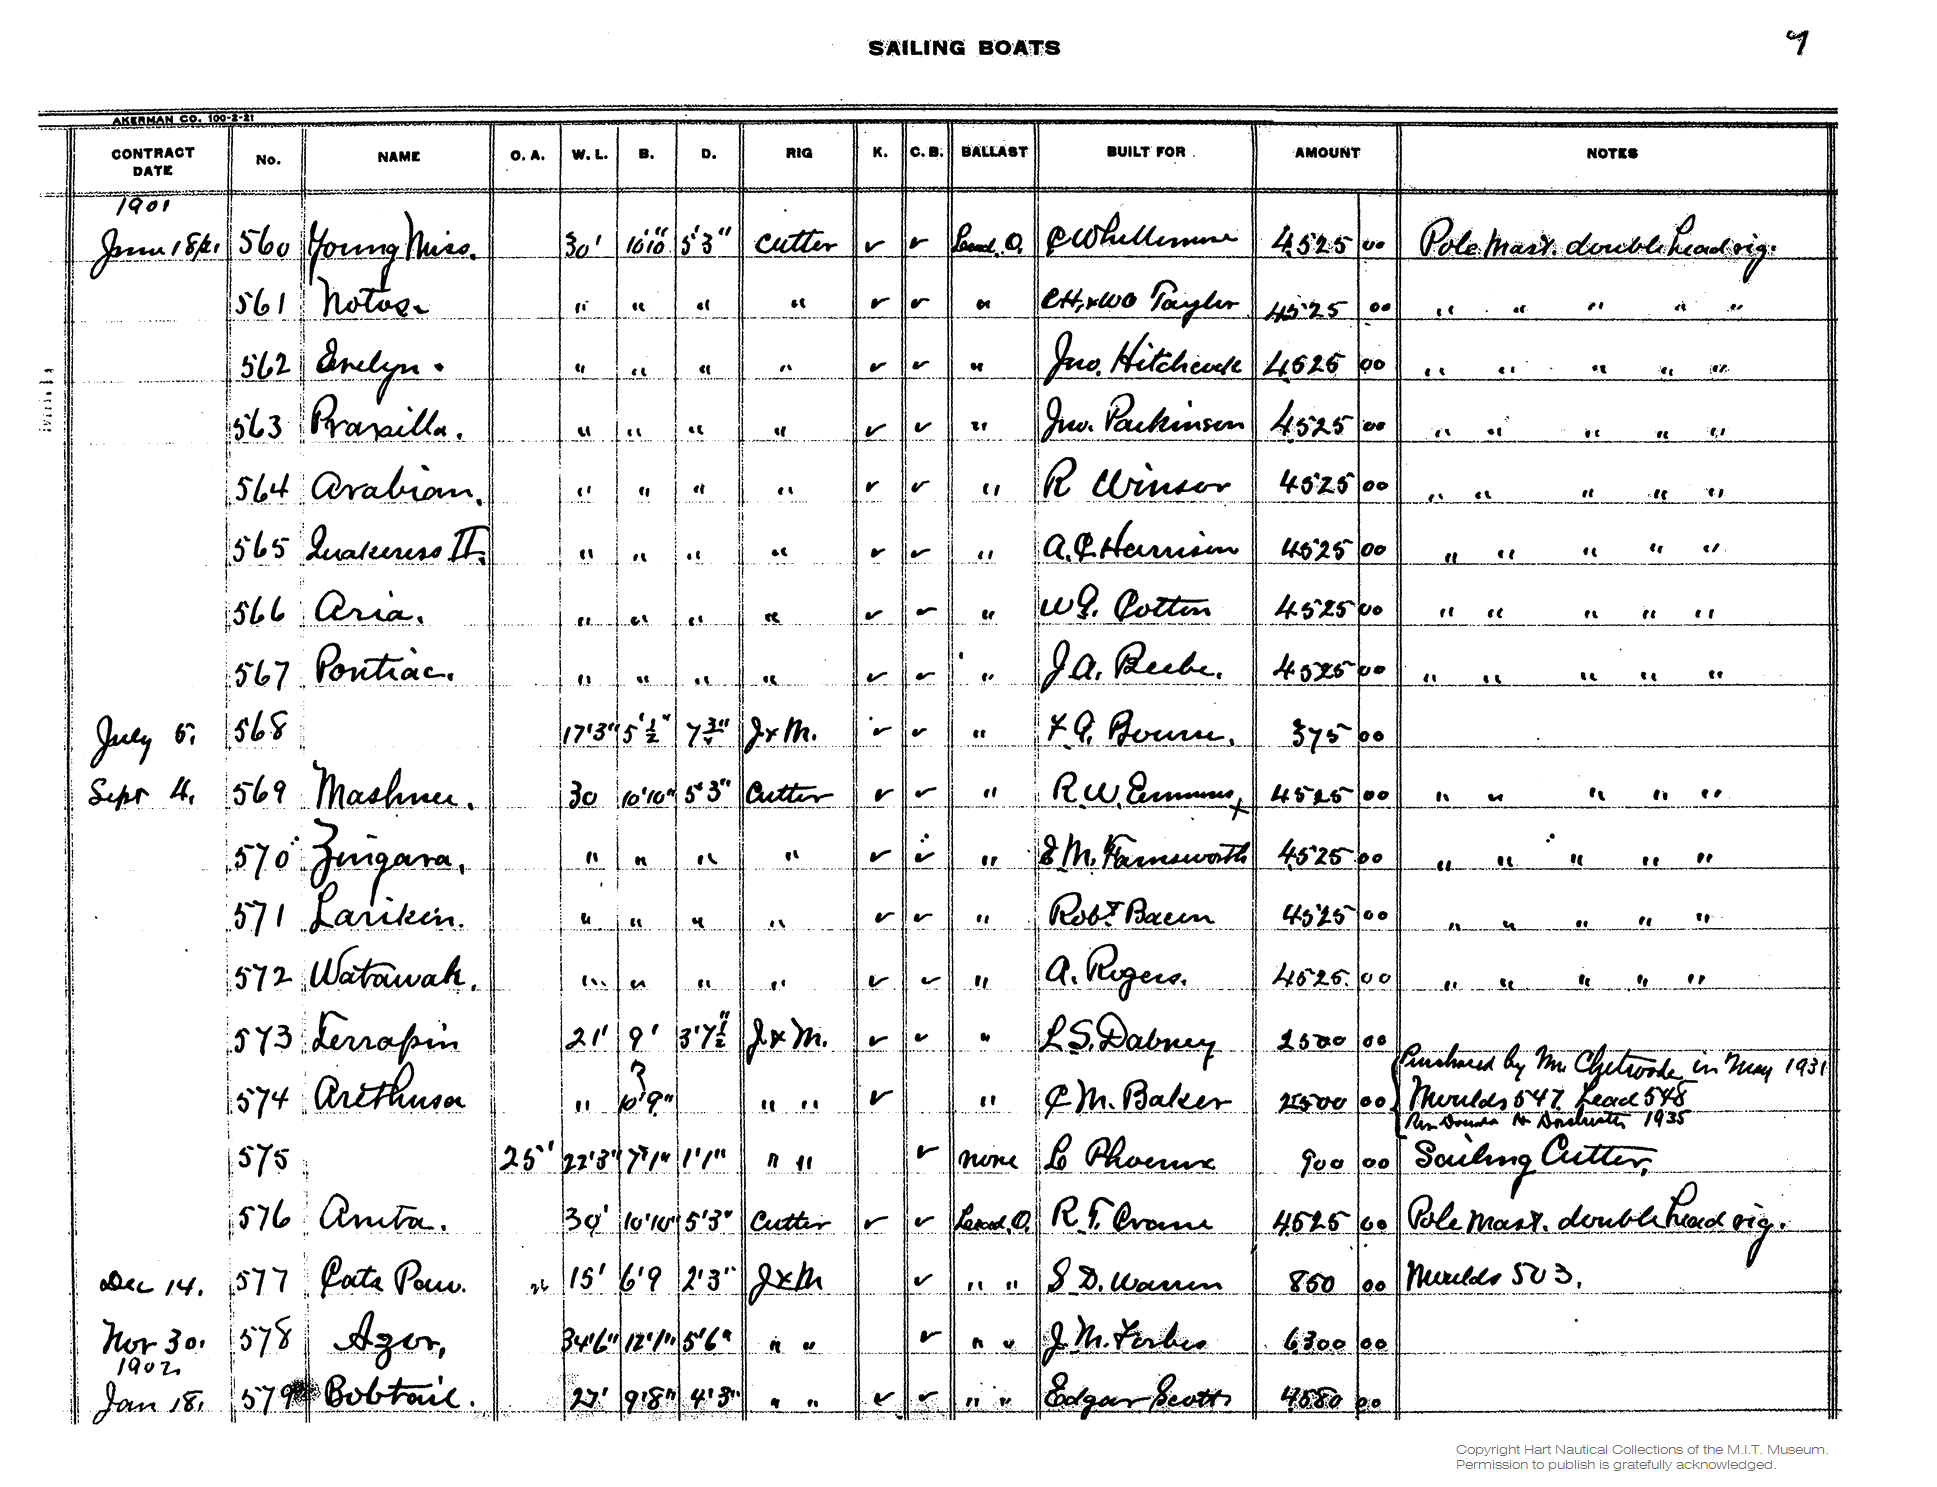 SAILING BOATS 9
AKERMAN CO. 100-2-21
CONTRACT DATE No. NAME O. A. W. L. B. D. RIG K. C. B. BALLAST BUILT FOR AMOUNT NOTES
1901
June 18/21 560 Young Miss. 30' 10'10" 5'3" Cutter ✓ ✓ Lead. O. C Whittemore 4525 00 Pole Mast. double head rig.
561 Notos. " " " " ✓ ✓ " CH, & WO Taylor 4525 00 " " " " "
562 Evelyn. " " " " ✓ ✓ " Jno. Hitchcock 4525 00 " " " " "
563 Praxilla. " " " " ✓ ✓ " Jno. Parkinson 4525 00 " " " " "
564 Arabian. " " " " ✓ ✓ " R Winsor 4525 00 " " " " "
565 Quakeress II. " " " " ✓ ✓ " A. C Harrison 4525 00 " " " " "
566 Aria. " " " " ✓ ✓ " Cotton 4525 00 " " " " "
567 Pontiac. " " " " ✓ ✓ " J A. Beebe. 4525 00 " " " " "
July 5. 568 17'3" 5'½" 7¾" J & M. ✓ ✓ " Bourne. 375 00
Sept 4. 569 Mashnee. 30 10'10" 5'3" Cutter ✓ ✓ " R. W. Emmons 4525 00 " " " " "
570 Zingara. " " " " ✓ ✓ " E M. Farnsworth 4525 00 " " " " "
571 Larikin. " " " " ✓ ✓ " Robt. Bacon 4525 00 " " " " "
572 Watawah. " " " " ✓ ✓ " A. Rogers. 4525. 00 " " " " "
573 Terrapin 21' 9' 3'7½" J. & M. ✓ ✓ " L. S. Dabney 2500 00
Purchased by Mr. Chetwode in May 1931
574 Arethusa " 10'9" " " ✓ " C M. Baker 2500 00 Moulds 547. Lead 548
Dorchester 1935
575 25' 22'3" 7'1" 1'1" " " ✓ none L Phoenix 900 00 Sailing Cutter,
576 Anita. 30' 10'10" 5'3" Cutter ✓ ✓ Lead. O. R. T. Crane 4525 00 Pole Mast. double head rig.
Dec 14. 577 Cats Paw. 15' 6'9 2'3" J & M ✓ " " S. D. Warren 850 00 Moulds 503.
Nov 30. 578 Azor, 34'6" 12'1" 5'6" " " ✓ " " J. M. Forbes 6300 00
1902
Jan 18. 579 Bobtail. 27' 9'8" 4'3" " " ✓ ✓ " " Edgar Scott 4580 00
Copyright Hart Nautical Collections of the M.I.T. Museum.
Permission to publish is gratefully acknowledged.